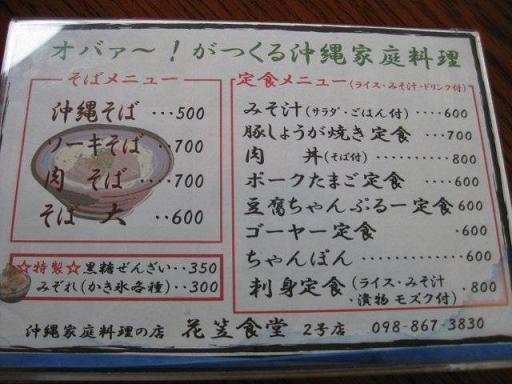 オバァ〜！がつくる沖縄家庭料理
そばメニュー
沖縄そば ・・・500
ソーキそば ・・700
肉 そば ・・・・700
そば 大 ・・600
☆特製☆黒糖ぜんざい・・350
みぞれ(かき氷各種)・・300
定食メニュー(ライス・みそ汁・ドリンク付)
みそ汁(サラダ・ごはん付)・・・・600
豚しょうが焼き定食 ・・・700
肉 丼(そば付)・・・・・・・・・・800
ポークたまご定食 ・・・・・600
豆腐ちゃんぷるー定食600
ゴーヤー定食 ・600
ちゃんぽん ・・・・・・・・・・・・・600
刺身定食(ライス・みそ汁・漬物 モズク付)・800
沖縄家庭料理の店 花笠食堂 2号店 098-867-3830